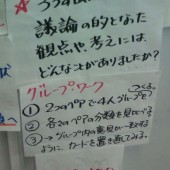 議論の的となった
観点や考えには、
どんなことがありましたか?
グループワーク
つくる。
① 2つのペアで4人グループを
② 各2つのペアの分類を見比べる
③ → グループ内の意見が一致する
ように、カードを置き直してみる。